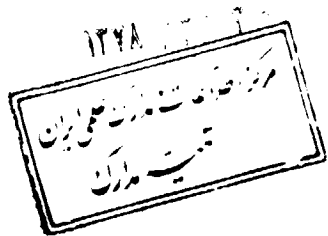 ۱۳۷۸
مرکز اطلاعات و مدارک علمی ایران
تثبیت مدارک